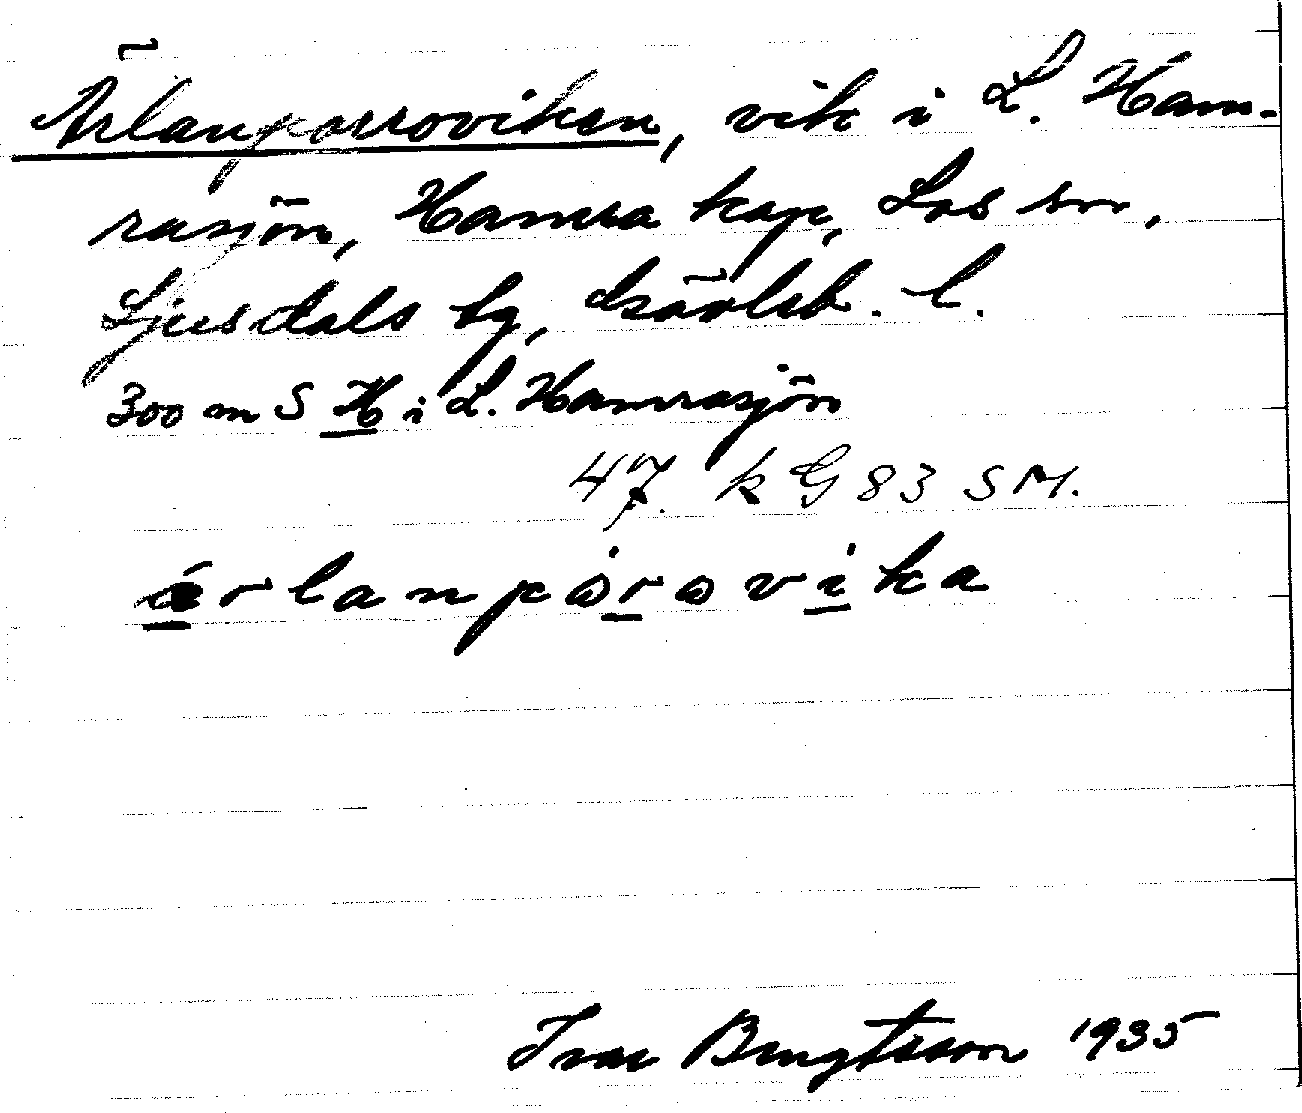 Ärlanporroviken, vik i L. Ham-
rasjön, Hamra kap, Los sn,
Ljusdals tg, Gävleb. l.
300 m S H i L. Hamrasjön
47. k G 83 SM.
ärlanpòrovika
Ivar Bengtsson 1935